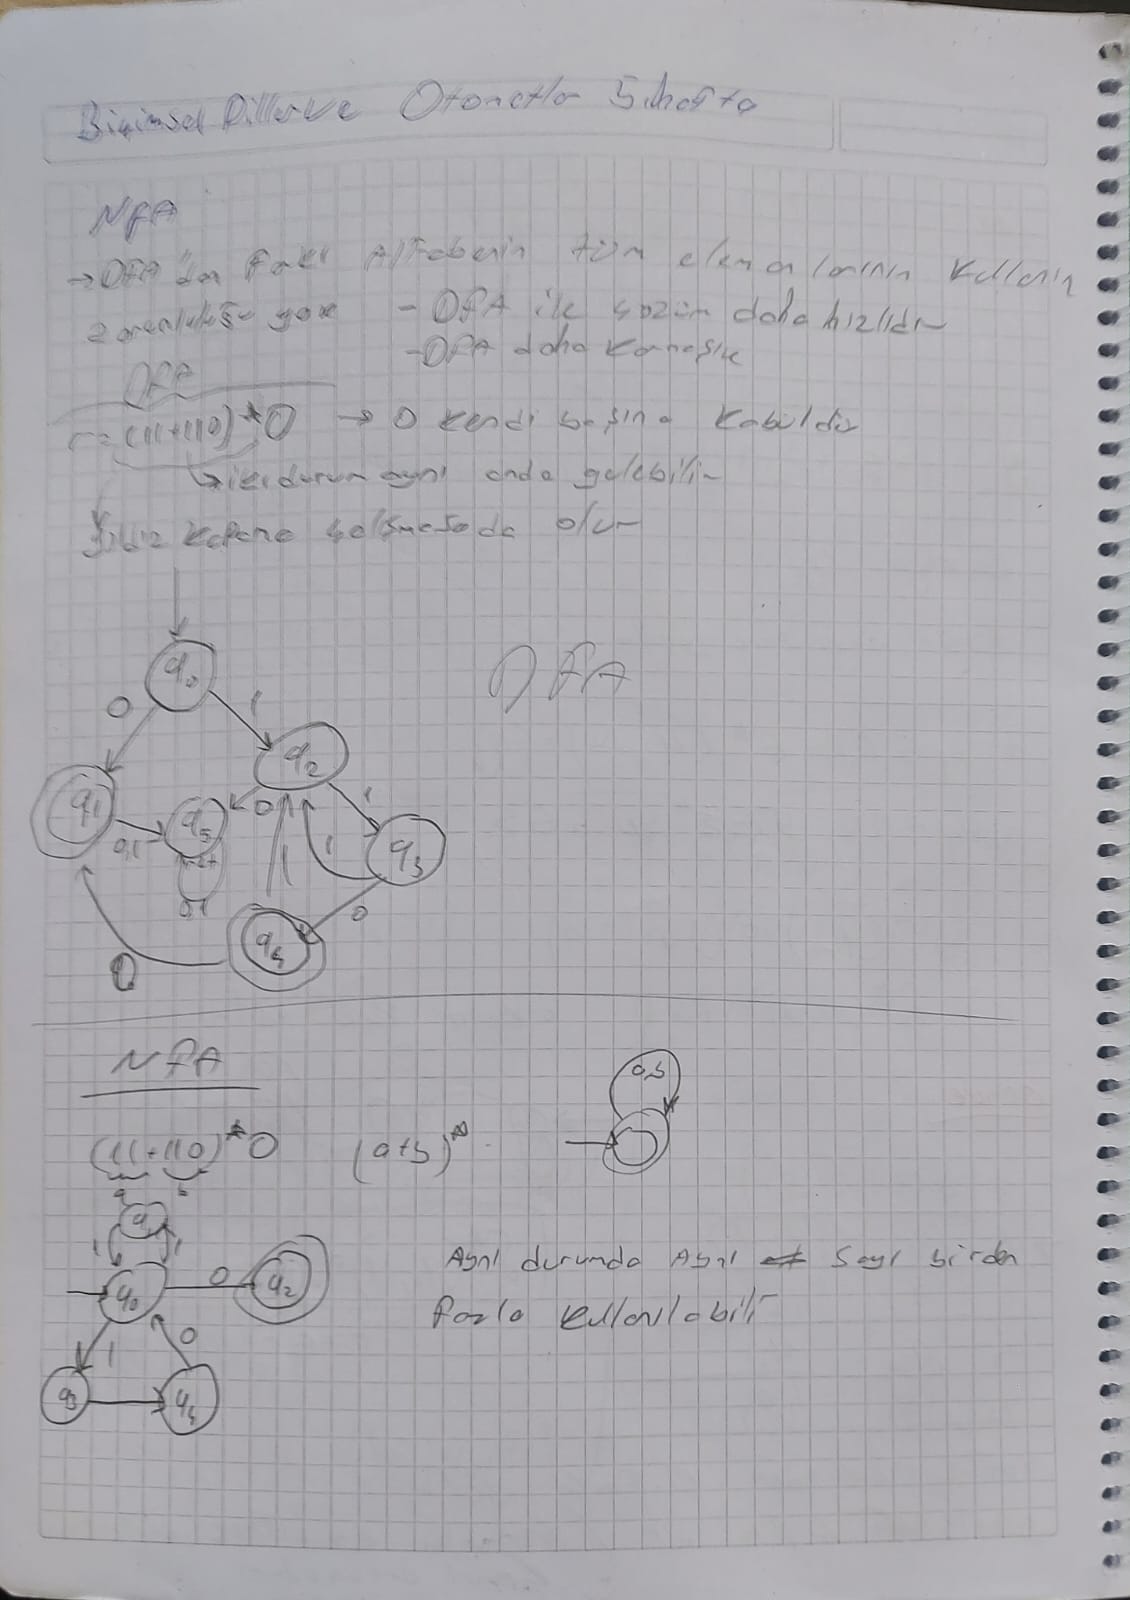 Biçimsel Diller ve Otomatlar 5. hafta
NFA
→ DFA'dan Farkı Alfabenin tüm elemanlarının kullanım
zorunluluğu yok - DFA ile çözüm daha hızlıdır
- DFA daha karmaşık
DFA
r = (11+110)*0 → 0 kendi başına kabuldür
↳ iki durum aynı anda gelebilir
çalışmasada olur
q0
DFA
0
1
q2
q1
q5
0
1
0,1
1
1
q3
0,1
0
q4
0
NFA
a,b
(11+110)*0 (a+b)*
a b
q1
1 1
q0
0
q2
Aynı durumda Aynı sayı birden
fazla kullanılabilir
1
0
q3
q4